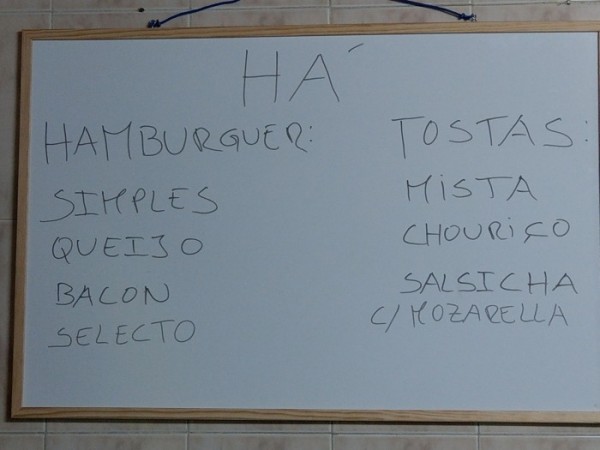 HÁ
HAMBURGUER:
SIMPLES
QUEIJO
BACON
SELECTO
TOSTAS:
MISTA
CHOURIÇO
SALSICHA
C/ MOZARELLA